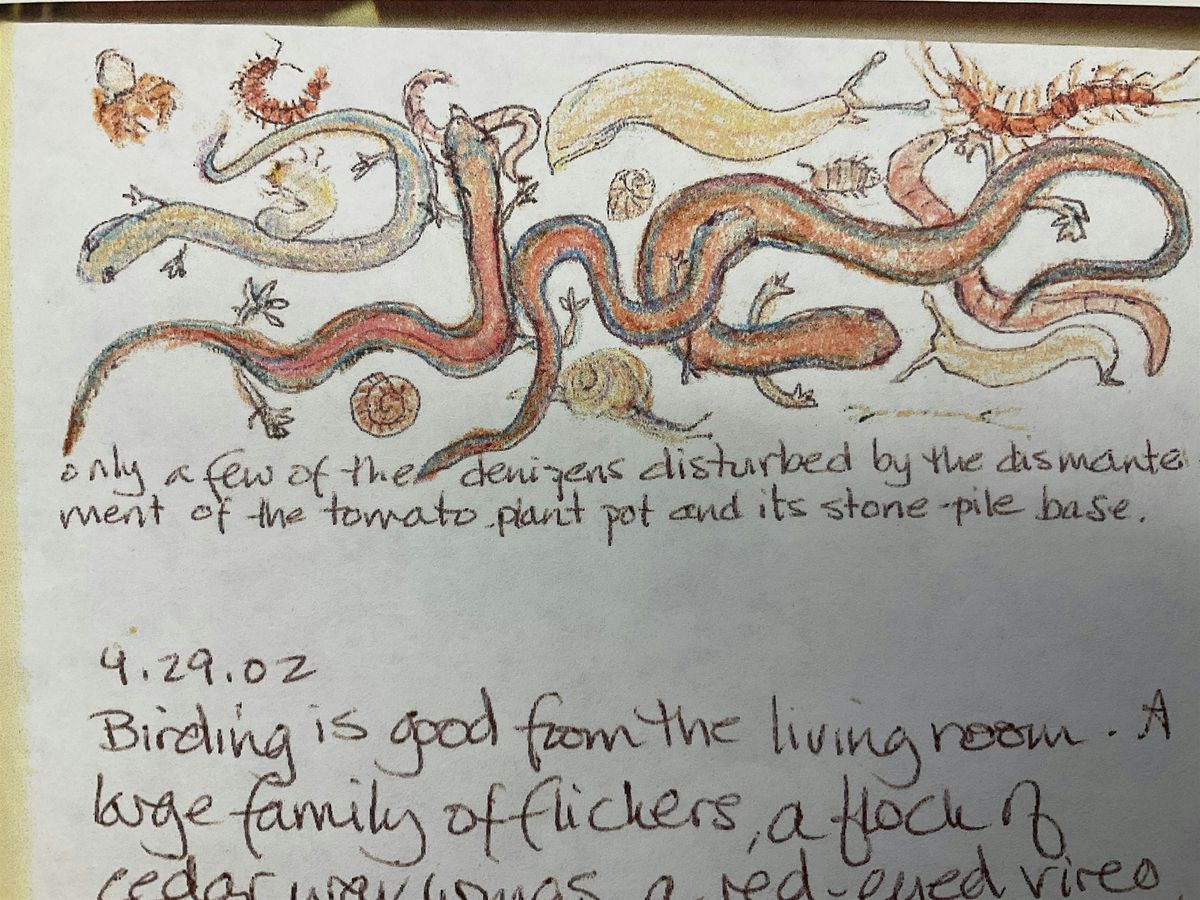 only a few of the denizens disturbed by the dismante
ment of the tomato plant pot and its stone-pile base.
9.29.02
Birding is good from the living room. A
large family of flickers, a flock of
cedar waxwings, a red-eyed vireo,